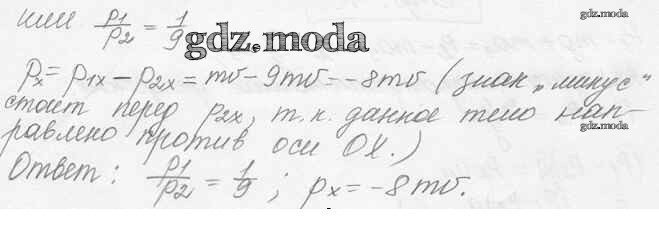 или p₁/p₂ = 1/9
gdz.moda
gdz.moda
pₓ = p₁ₓ – p₂ₓ = mv – 9mv = –8mv (знак „минус“
gdz.moda
стоит перед p₂ₓ, т.к. данное тело нап-
равлено против оси OX.)
Ответ: p₁/p₂ = 1/9; pₓ = –8mv.